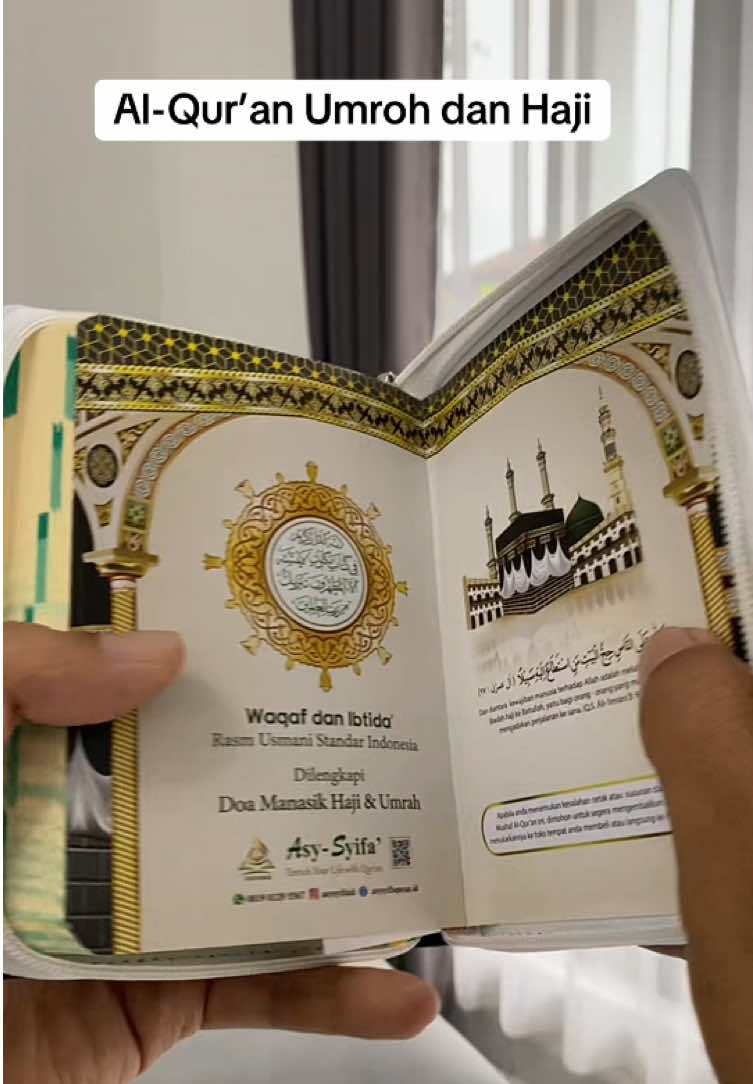 Al-Qur'an Umroh dan Haji
Waqaf dan Ibtida'
Rasm Usmani Standar Indonesia
Dilengkapi
Doa Manasik Haji & Umrah
Asy-Syifa'
حِجُّ الْبَيْتِ مَنِ اسْتَطَاعَ اِلَيْهِ سَبِيْلًا
Dan diantara kewajiban manusia terhadap Allah adalah
ibadah haji ke Baitullah, yaitu bagi orang - orang yang
mengadakan perjalanan ke sana. (Q.S.
Apabila anda menemukan kesalahan cetak atau susunan
Mushaf Al-Qur'an ini, dimohon untuk segera mengembalikan
menukarkannya ke toko tempat anda membeli atau langsung